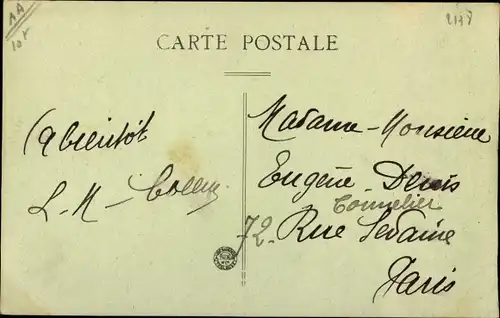 AA
10f
2178
CARTE POSTALE
(a bientôt
L-M-
Madame-Monsieur
Eugène Denis
Tonnelier
72 Rue Sedaine
Paris